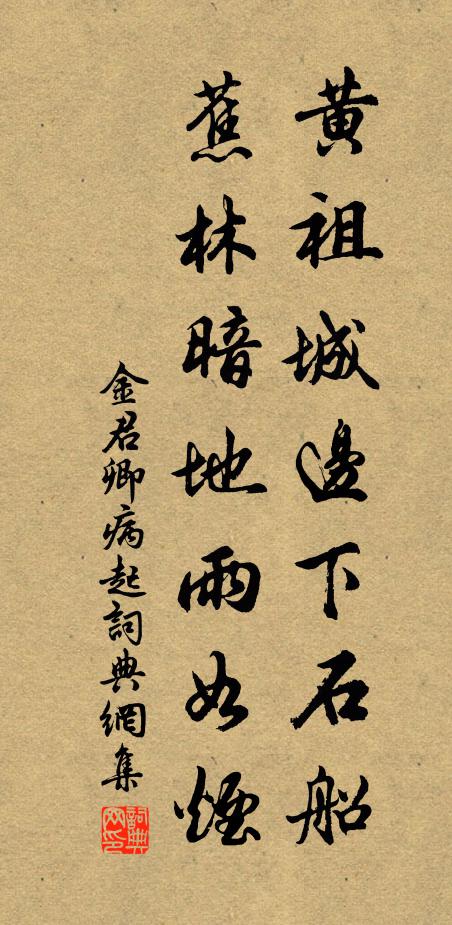 黄祖城邊下石船
蕉林暗地雨如煙
金君卿病起詞典網集
詞典网印